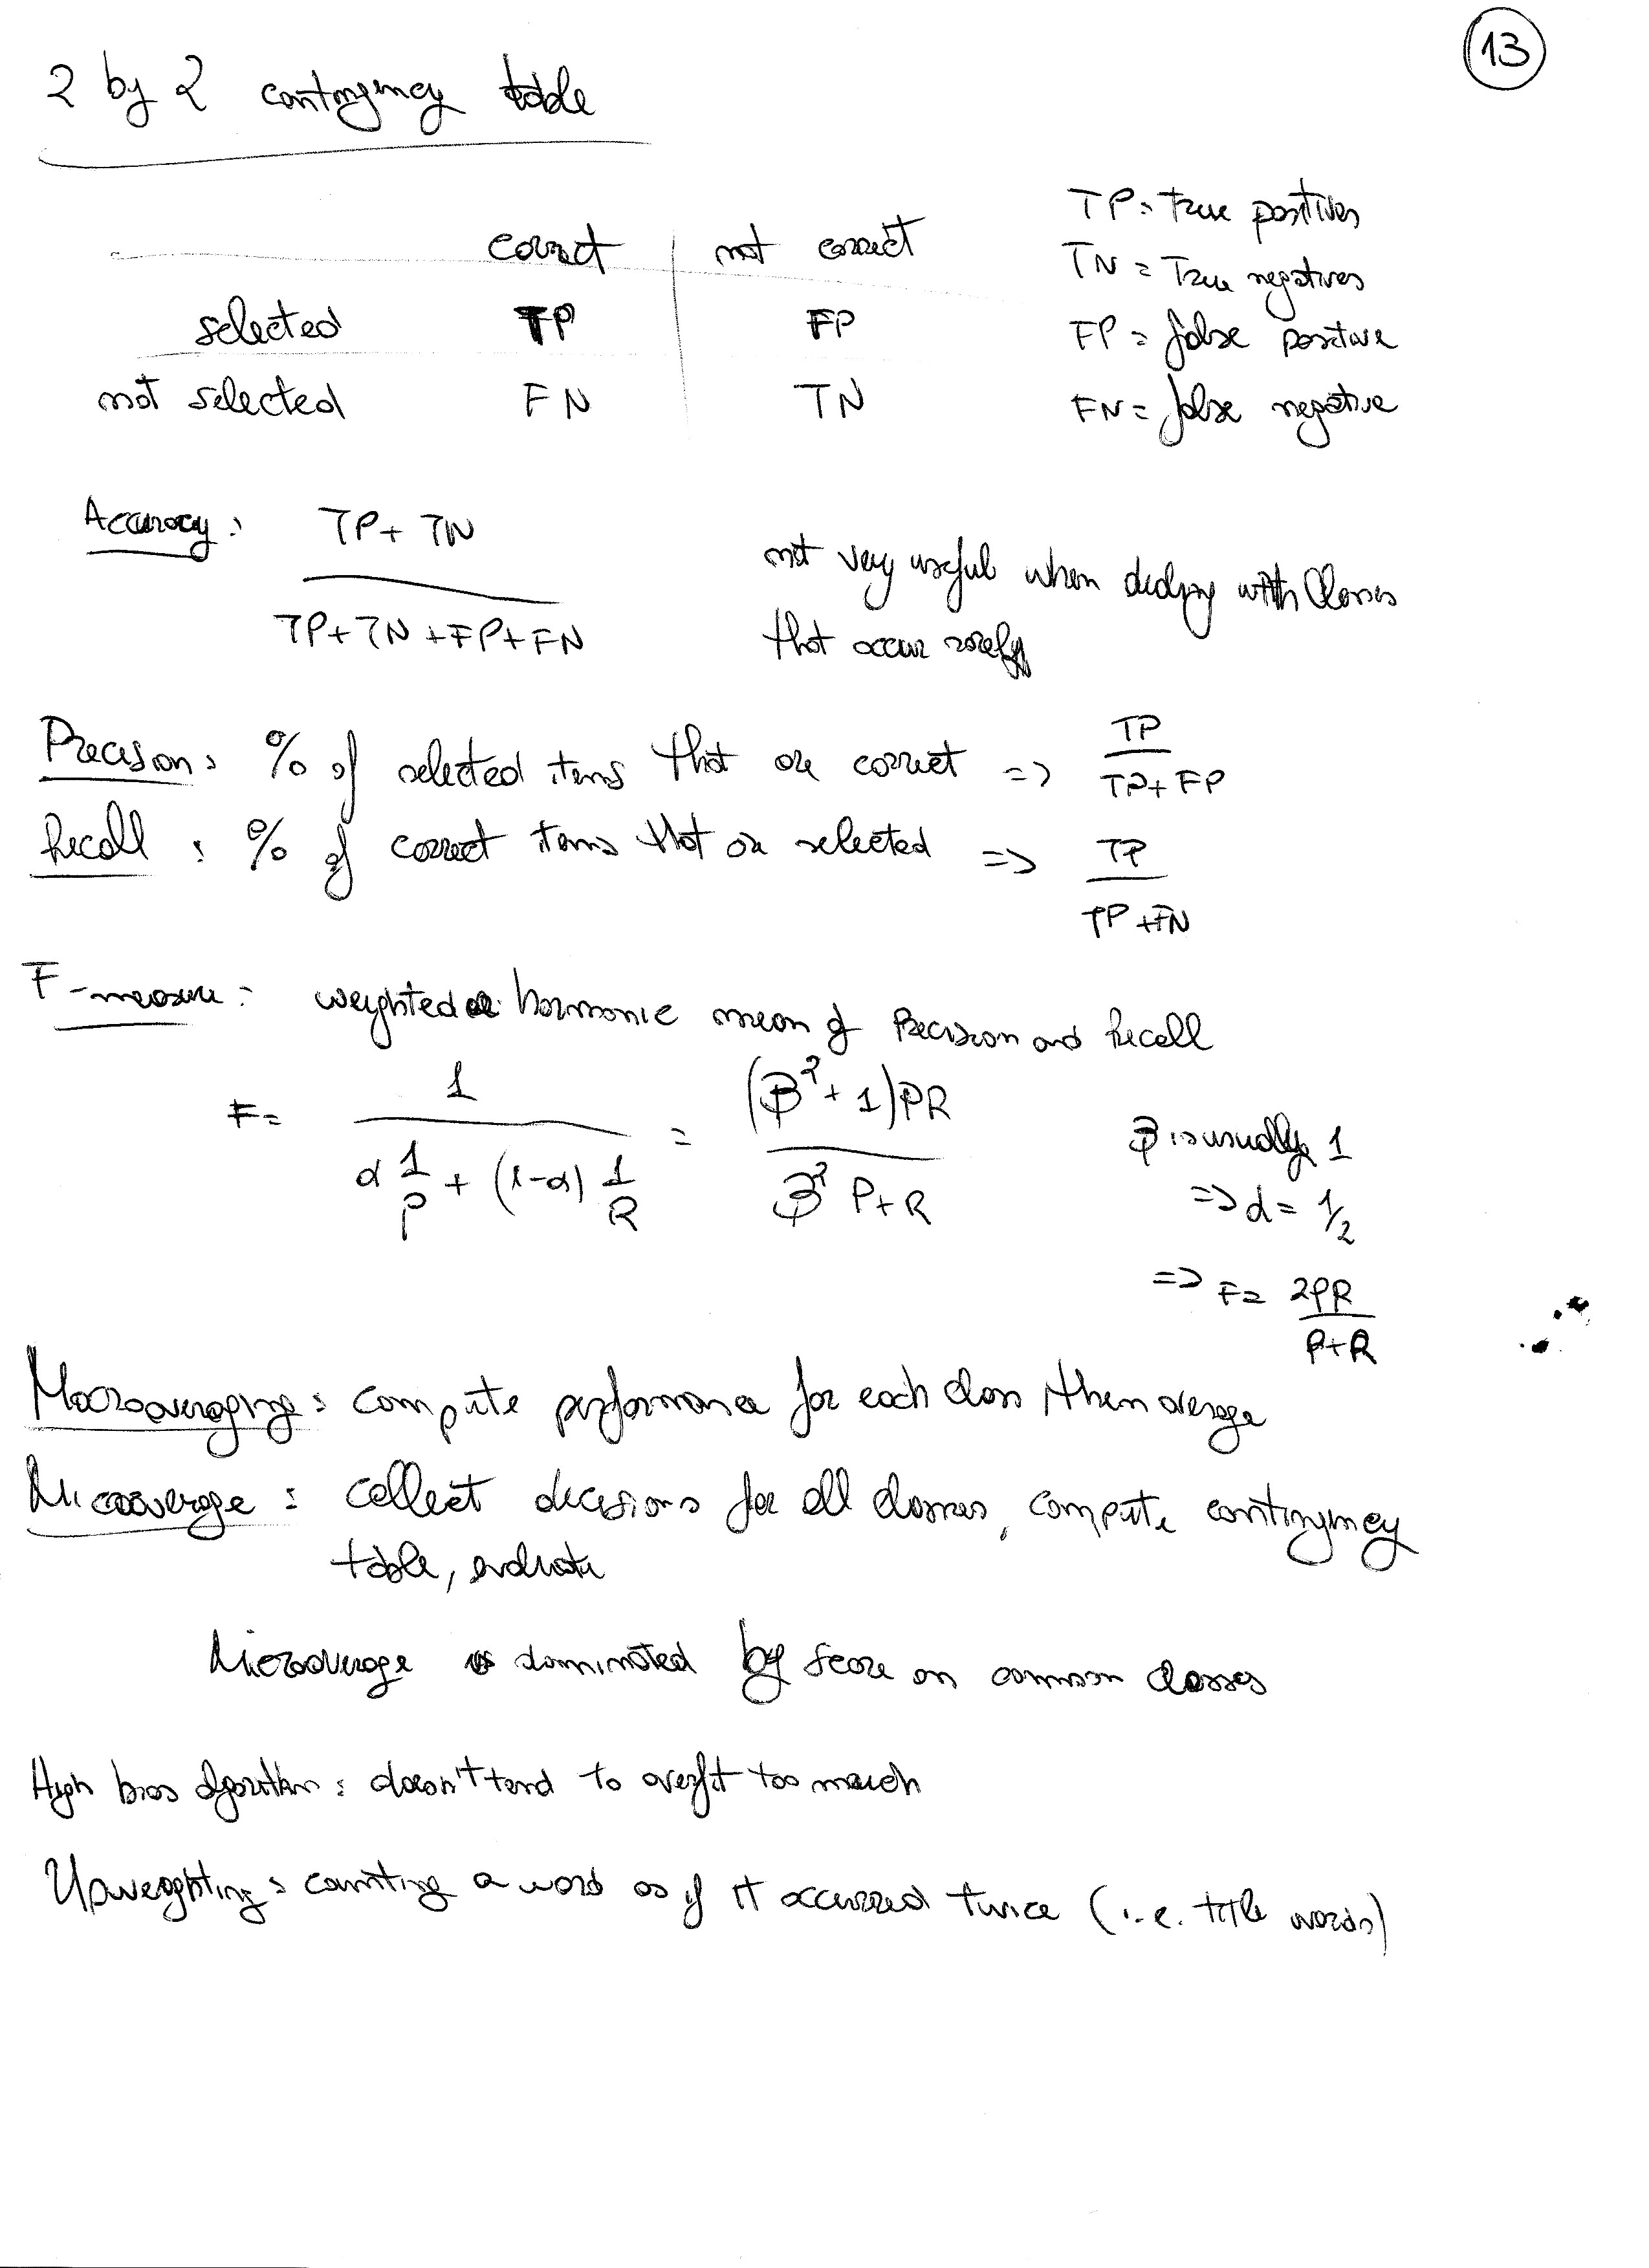 13
2 by 2 contingency table
correct | not correct
selected TP FP
not selected FN TN
TP = true positives
TN = True negatives
FP = false positive
FN = false negative
Accuracy: TP + TN / TP + TN + FP + FN
not very useful when dealing with classes
that occur rarely
Precision: % of selected items that are correct => TP / TP + FP
Recall : % of correct items that are selected => TP / TP + FN
F-measure: weighted harmonic mean of Precision and Recall
F = 1 / α 1/P + (1-α) 1/R = (β² + 1) PR / β² P + R
β is usually 1
=> α = 1/2
=> F = 2PR / P+R
Macroaveraging: compute performance for each class, then average
Microaverage : collect decisions for all classes, compute contingency
table, evaluate
Microaverage is dominated by score on common classes
High bias algorithm : doesn't tend to overfit too much
Upweighting : counting a word as if it occurred twice (i.e. title words)